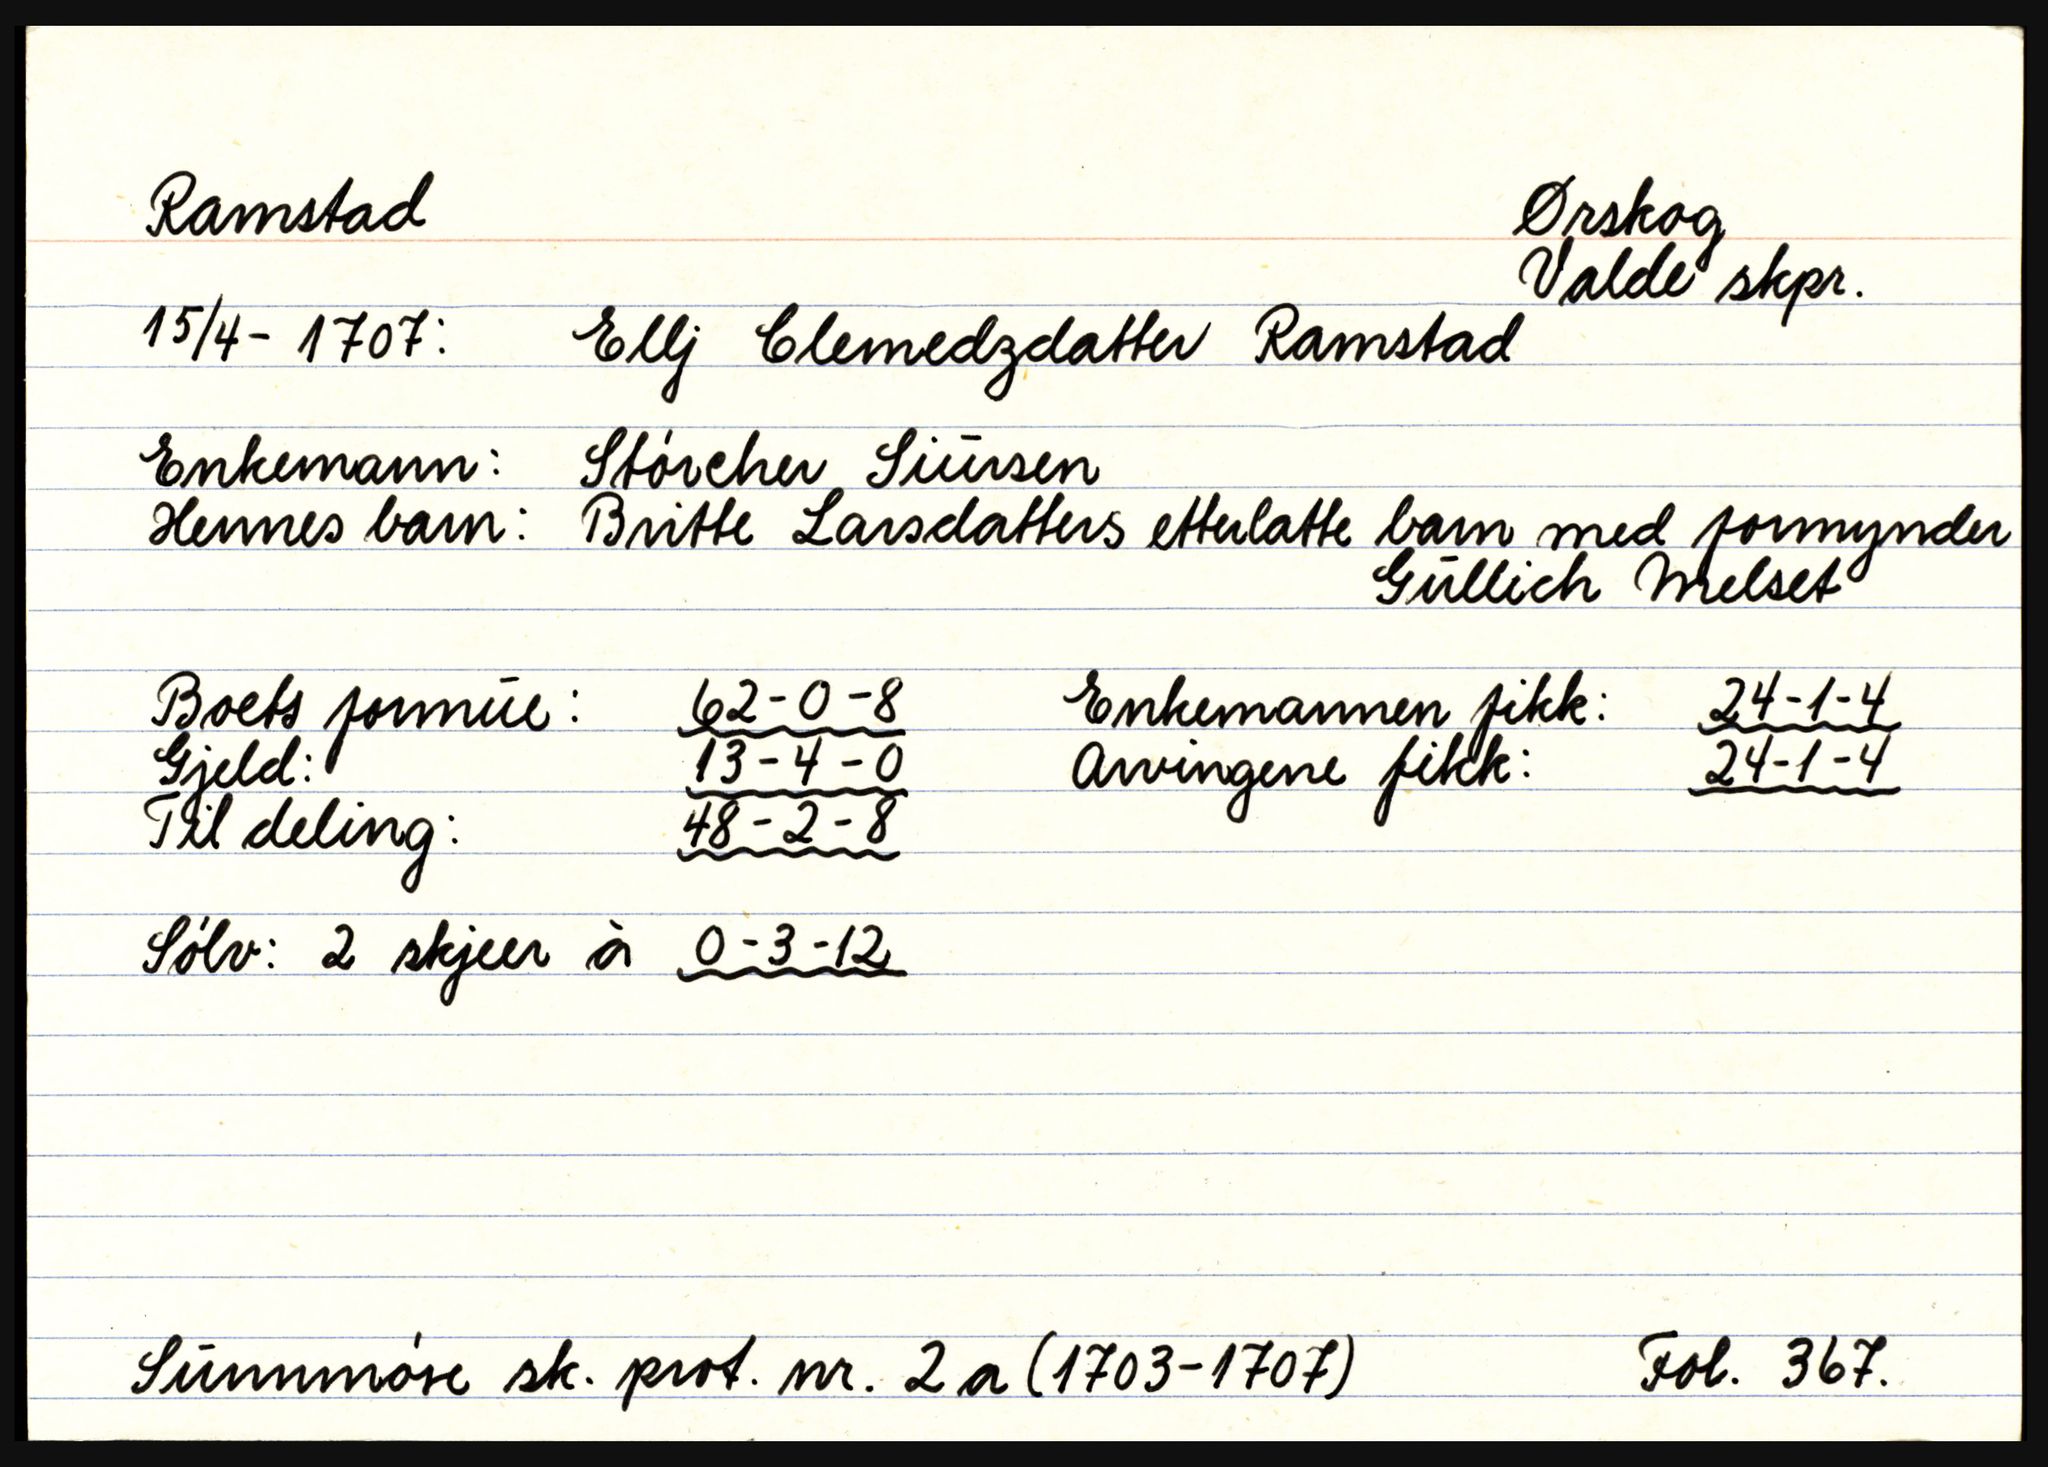 Ramstad Ørskog
Valde skpr.
15/4- 1707: Ellj Clemedzdatter Ramstad
Enkemann: Störcher Siursen
Hennes barn: Britte Larsdatters etterlatte barn med formynder
Gullich Melset
Boets formue: 62-0-8 Enkemannen fikk: 24-1-4
Gjeld: 13-4-0 Arvingene fikk: 24-1-4
Til deling: 48-2-8
Sølv: 2 skjeer à 0-3-12
Sunnmøre sk. prot. nr. 2a (1703-1707) Fol. 367.